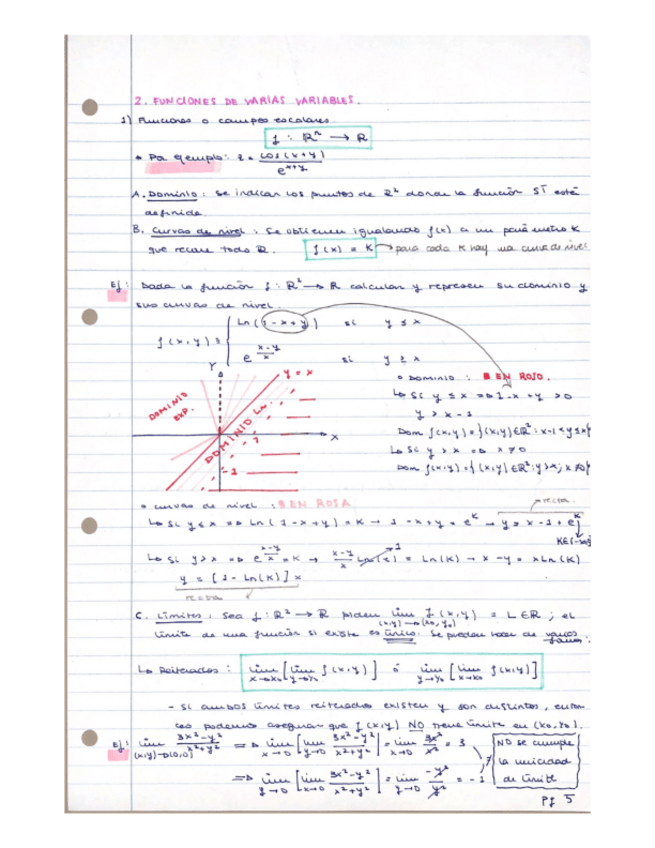 2. FUNCIONES DE VARIAS VARIABLES.
1) Funciones o campos escalares
f : ℝⁿ → ℝ
• Por ejemplo: z = cos(x+y) / e^(x+y)
A. Dominio : se indican los puntos de ℝ² donde la función SÍ está
definida
B. Curvas de nivel : Se obtienen igualando f(x) a un parámetro K
que recorre todo ℝ. f(x) = K → para cada K hay una curva de nivel
Ej : Dada la función f : ℝ² → ℝ calcular y representar su dominio y
sus curvas de nivel.
f(x,y) = { Ln(1-x+y) si y ≤ x
e^((x-y)/x) si y > x
Y
y = x
DOMINIO EXP.
DOMINIO Ln.
X
1
-1
• DOMINIO : EN ROJO.
↳ Si y ≤ x ⇒ 1-x+y > 0
y > x-1
Dom f(x,y) = {(x,y) ∈ ℝ² : x-1 < y ≤ x}
↳ Si y > x ⇒ x ≠ 0
Dom f(x,y) = {(x,y) ∈ ℝ² : y > x; x ≠ 0}
• curvas de nivel : EN ROSA
recta
↳ Si y ≤ x ⇒ Ln(1-x+y) = K → 1-x+y = e^K → y = x-1+e^K
↳ Si y > x ⇒ e^((x-y)/x) = K → (x-y)/x Ln(e) = Ln(K) → x-y = x Ln(K)
1
y = [1-Ln(K)] x
recta
C. Límites : Sea f : ℝ² → ℝ lim f(x,y) = L ∈ ℝ ; el
(x,y)→(x₀,y₀)
límite de una función si existe es único. Se pueden hacer de varias
↳ Reiterados : lim x→x₀ [lim y→y₀ f(x,y)] ó lim y→y₀ [lim x→x₀ f(x,y)]
- Si ambos límites reiterados existen y son distintos, enton
ces podemos asegurar que f(x,y) NO tiene límite en (x₀,y₀).
Ej : lim (x,y)→(0,0) (3x²-y²)/(x²+y²) ⇒ lim x→0 [lim y→0 (3x²-y²)/(x²+y²)] = lim x→0 3x²/x² = 3
⇒ lim y→0 [lim x→0 (3x²-y²)/(x²+y²)] = lim y→0 -y²/y² = -1
≠
NO se cumple
la unicidad
de límite
Pg 5